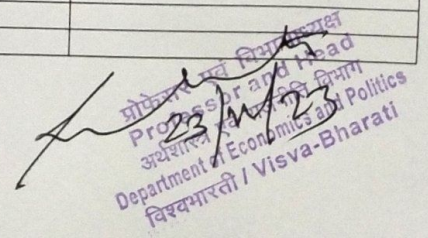 प्रोफेसर एवं विभागाध्यक्ष
Professor and Head
अर्थशास्त्र एवं राजनीति विभाग
Department of Economics and Politics
विश्वभारती / Visva-Bharati
23/11/23